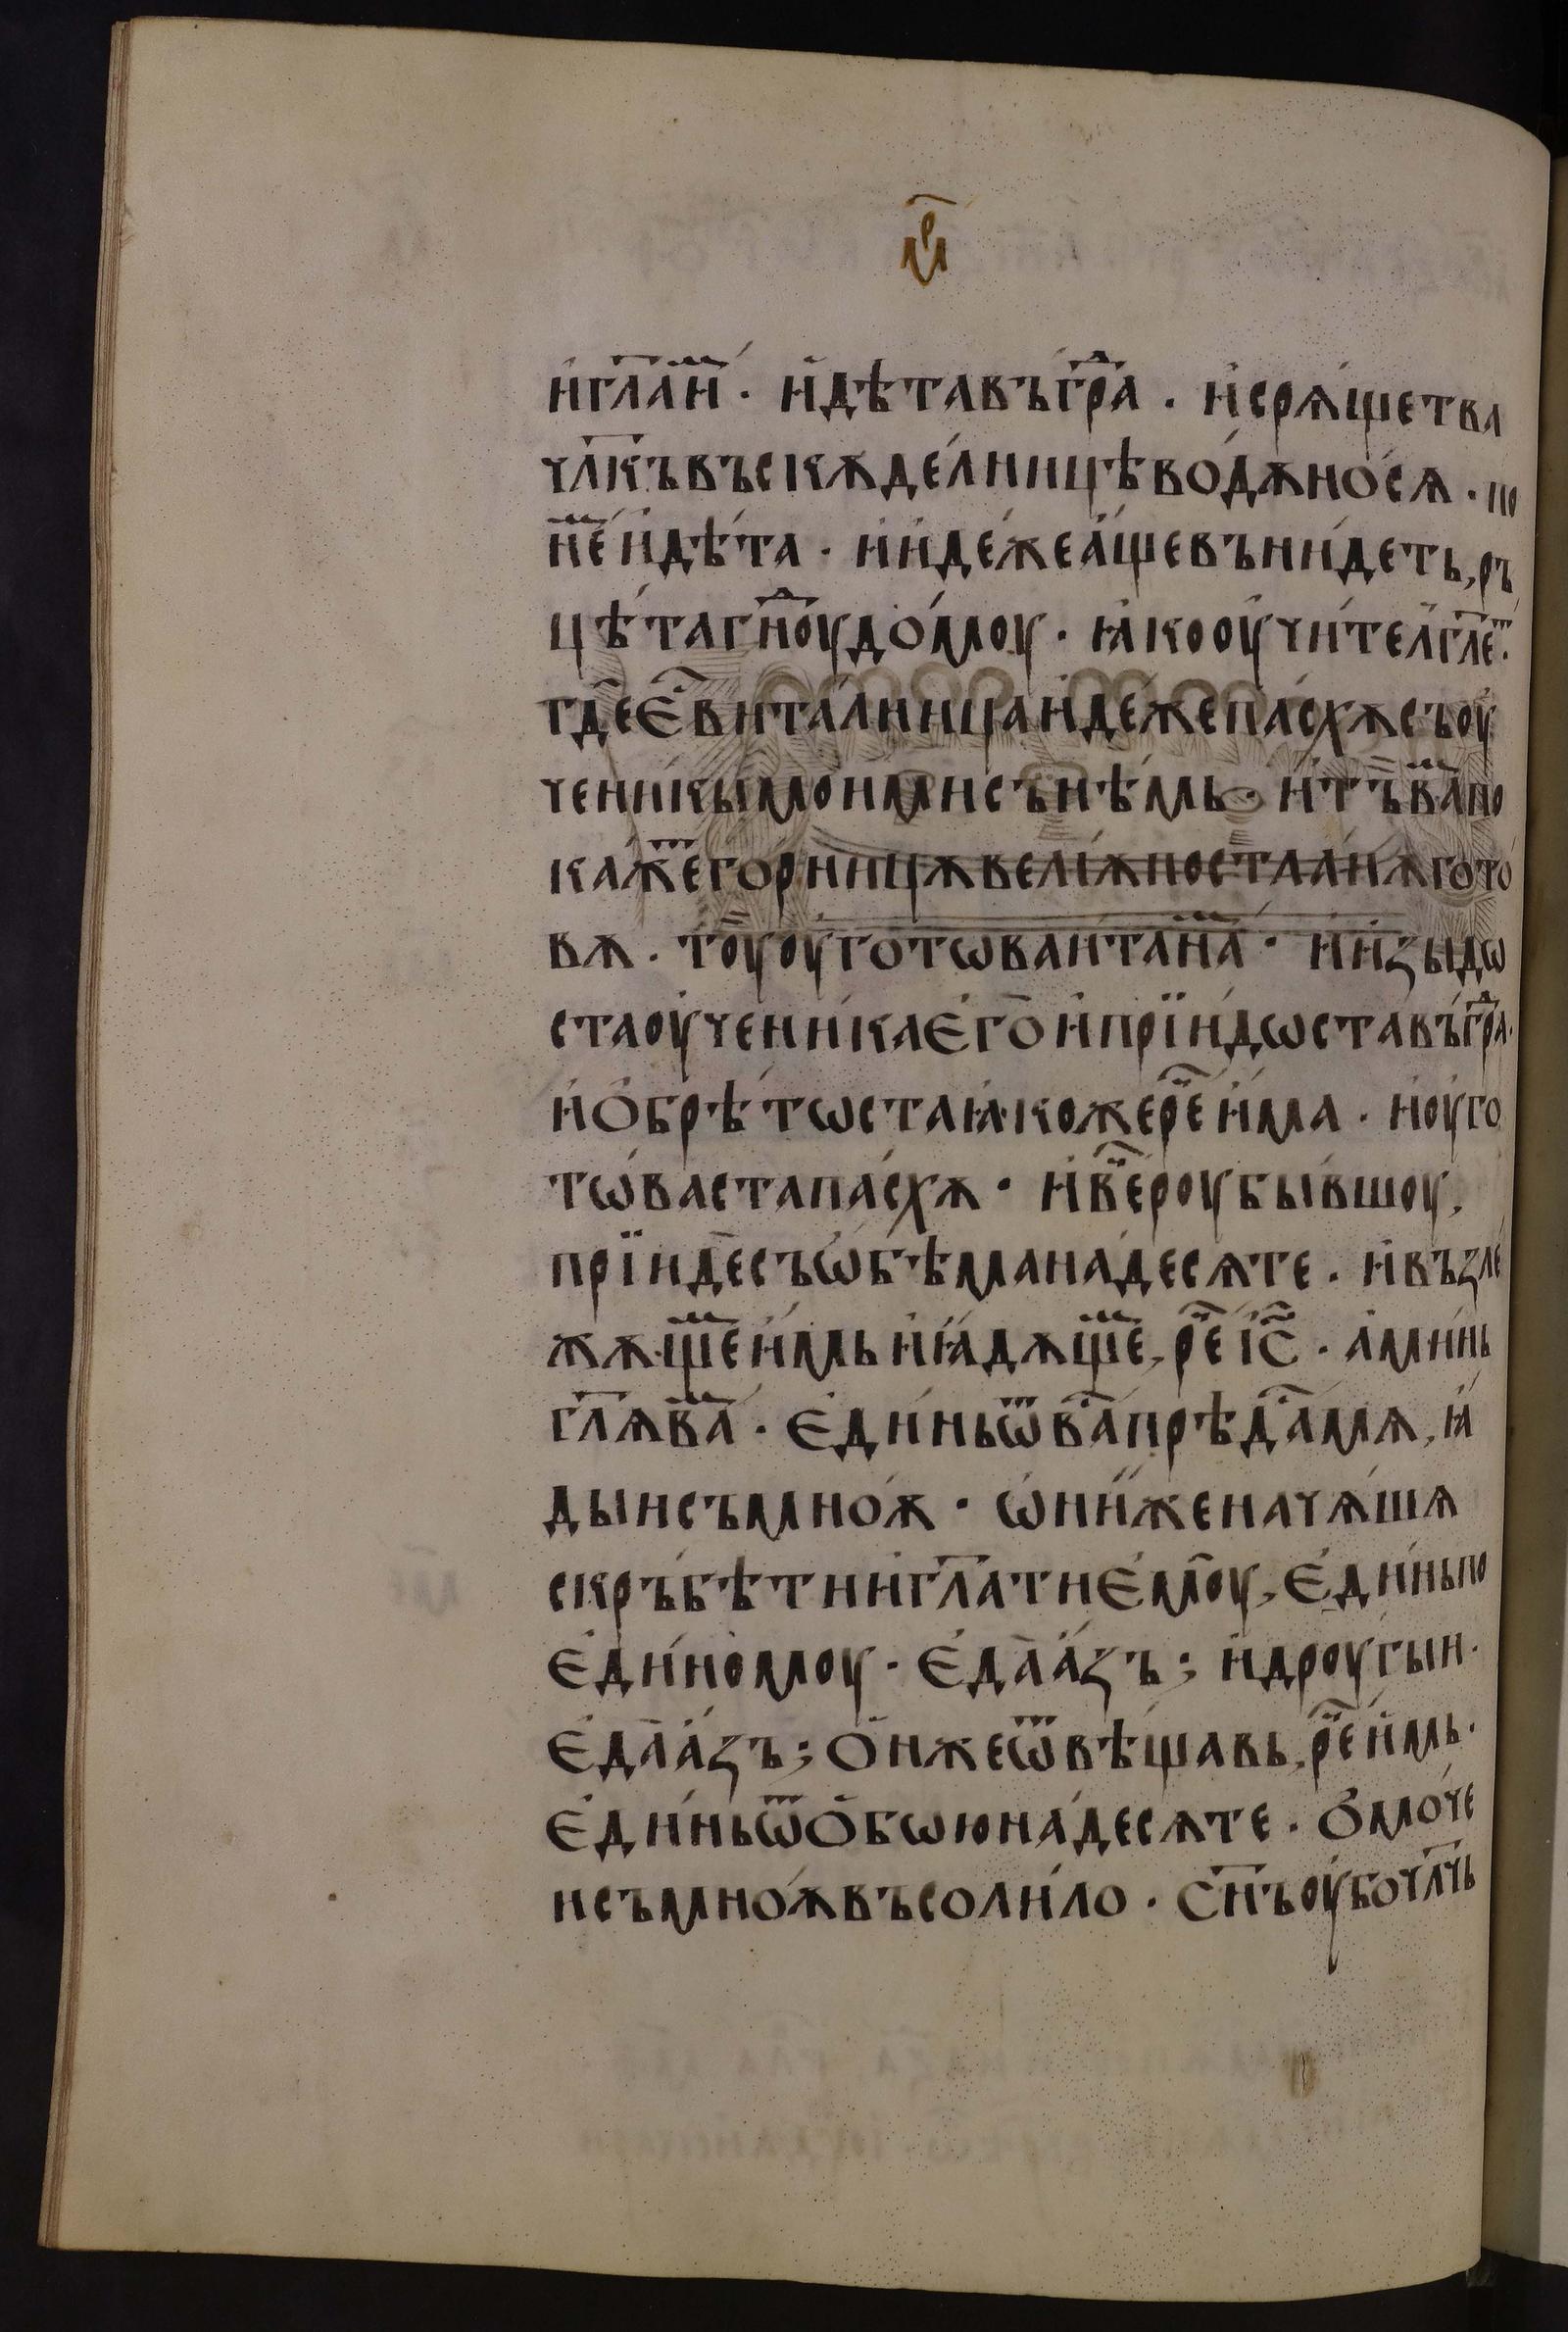 мр҃
и҆гл҃а и҆́м . и҆дѣ́та въ гра́д . и҆ срѧ́щетъ ва
чл҃къ въ скѫде́лници во́дѫ носѧ . по
не́м и҆дѣ́та . и҆ и҆де́же а҆́ще въни́деть, ръ
цѣ́та гн҃оу до́моу . ꙗ҆ко оу҆чи́тел гл҃ет .
гдѐ є҆́с вита́лница и҆де́же па́схѫ съ оу҆
ченикы̀ мои́ми сънѣ́мь . и҆ тъ̀ ва́м по
ка́жет го́рницѫ ве́лїѫ постла́нѫ гото́
вѫ . тоу̀ оу҆гото́ваита на́м . и҆ и҆зыдѡ
ста оу҆ченика̀ є҆го̀ и҆ прїидѡста въ гра́д .
и҆ ѻ҆брѣ́тѡста ꙗ҆коже рече́ и҆́ма . и҆ оу҆го
тѡ́васта па́схѫ . и҆ ве́череу бы́вшоу,
прїи́де съ ѡ҆бѣ́ма на́десѧте . и҆ възле
жѫ́щем и҆́мь и҆ ꙗ҆дѫ́щем, рече́ і҆с҃ . а҆ми́нь
гл҃ѧ ва́м . є҆ди́нь ѿ ва́с прѣда́ст мѧ, ꙗ҆
дыи съ мно́ѫ . ѡ҆ни́ же начѧ́шѧ
скръбѣ́ти и҆ гл҃ати є҆мо́у, є҆ди́нь по
є҆ди́номоу . є҆да̀ а҆́зъ ; и҆ дроугыи .
є҆да̀ а҆́зъ ; ѻ҆н же ѿвѣщавь, рече́ и҆́мь .
є҆ди́нь ѿ ѻ҆бѡю на́десѧте . ѻ҆мо́че
и съ мно́ѫ въ соли́ло . сн҃ъ оу҆бо чл҃чь